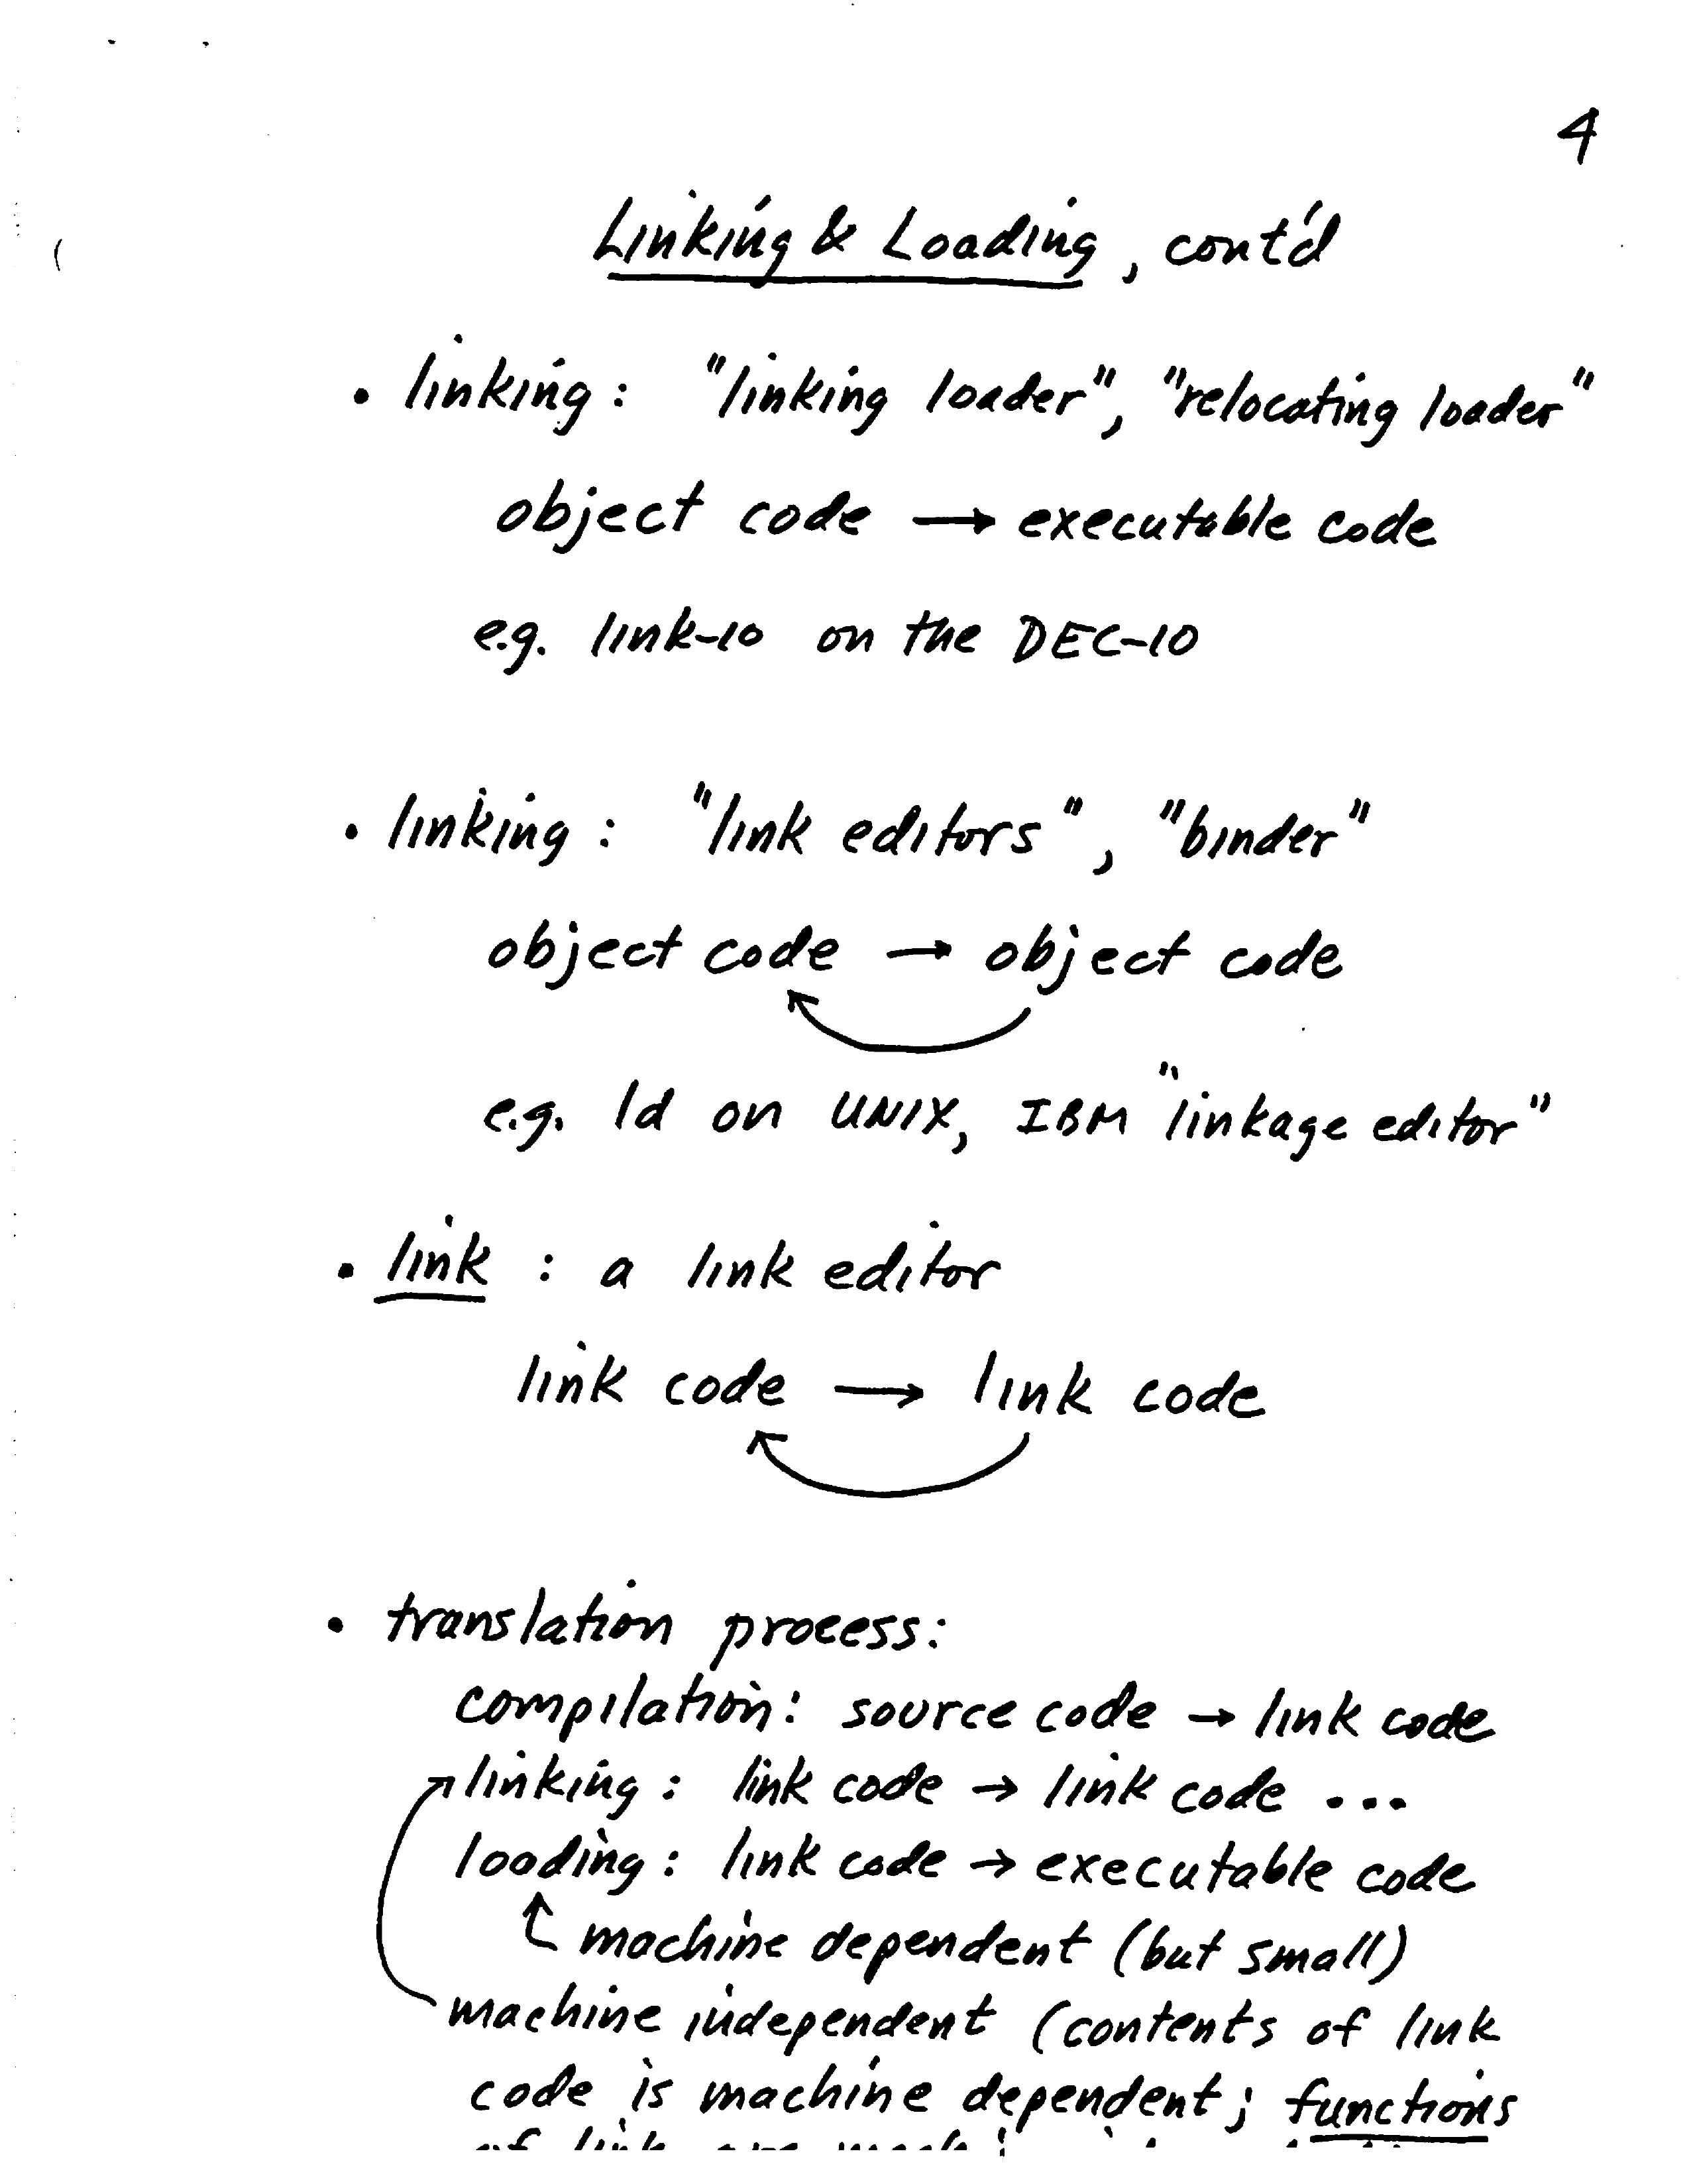 4
Linking & Loading, cont'd
• linking: "linking loader", "relocating loader"
object code → executable code
e.g. link-10 on the DEC-10
• linking: "link editors", "binder"
object code → object code
e.g. ld on UNIX, IBM "linkage editor"
• link : a link editor
link code → link code
• translation process:
compilation: source code → link code
linking: link code → link code ...
loading: link code → executable code
machine dependent (but small)
machine independent (contents of link
code is machine dependent; functions
of link are